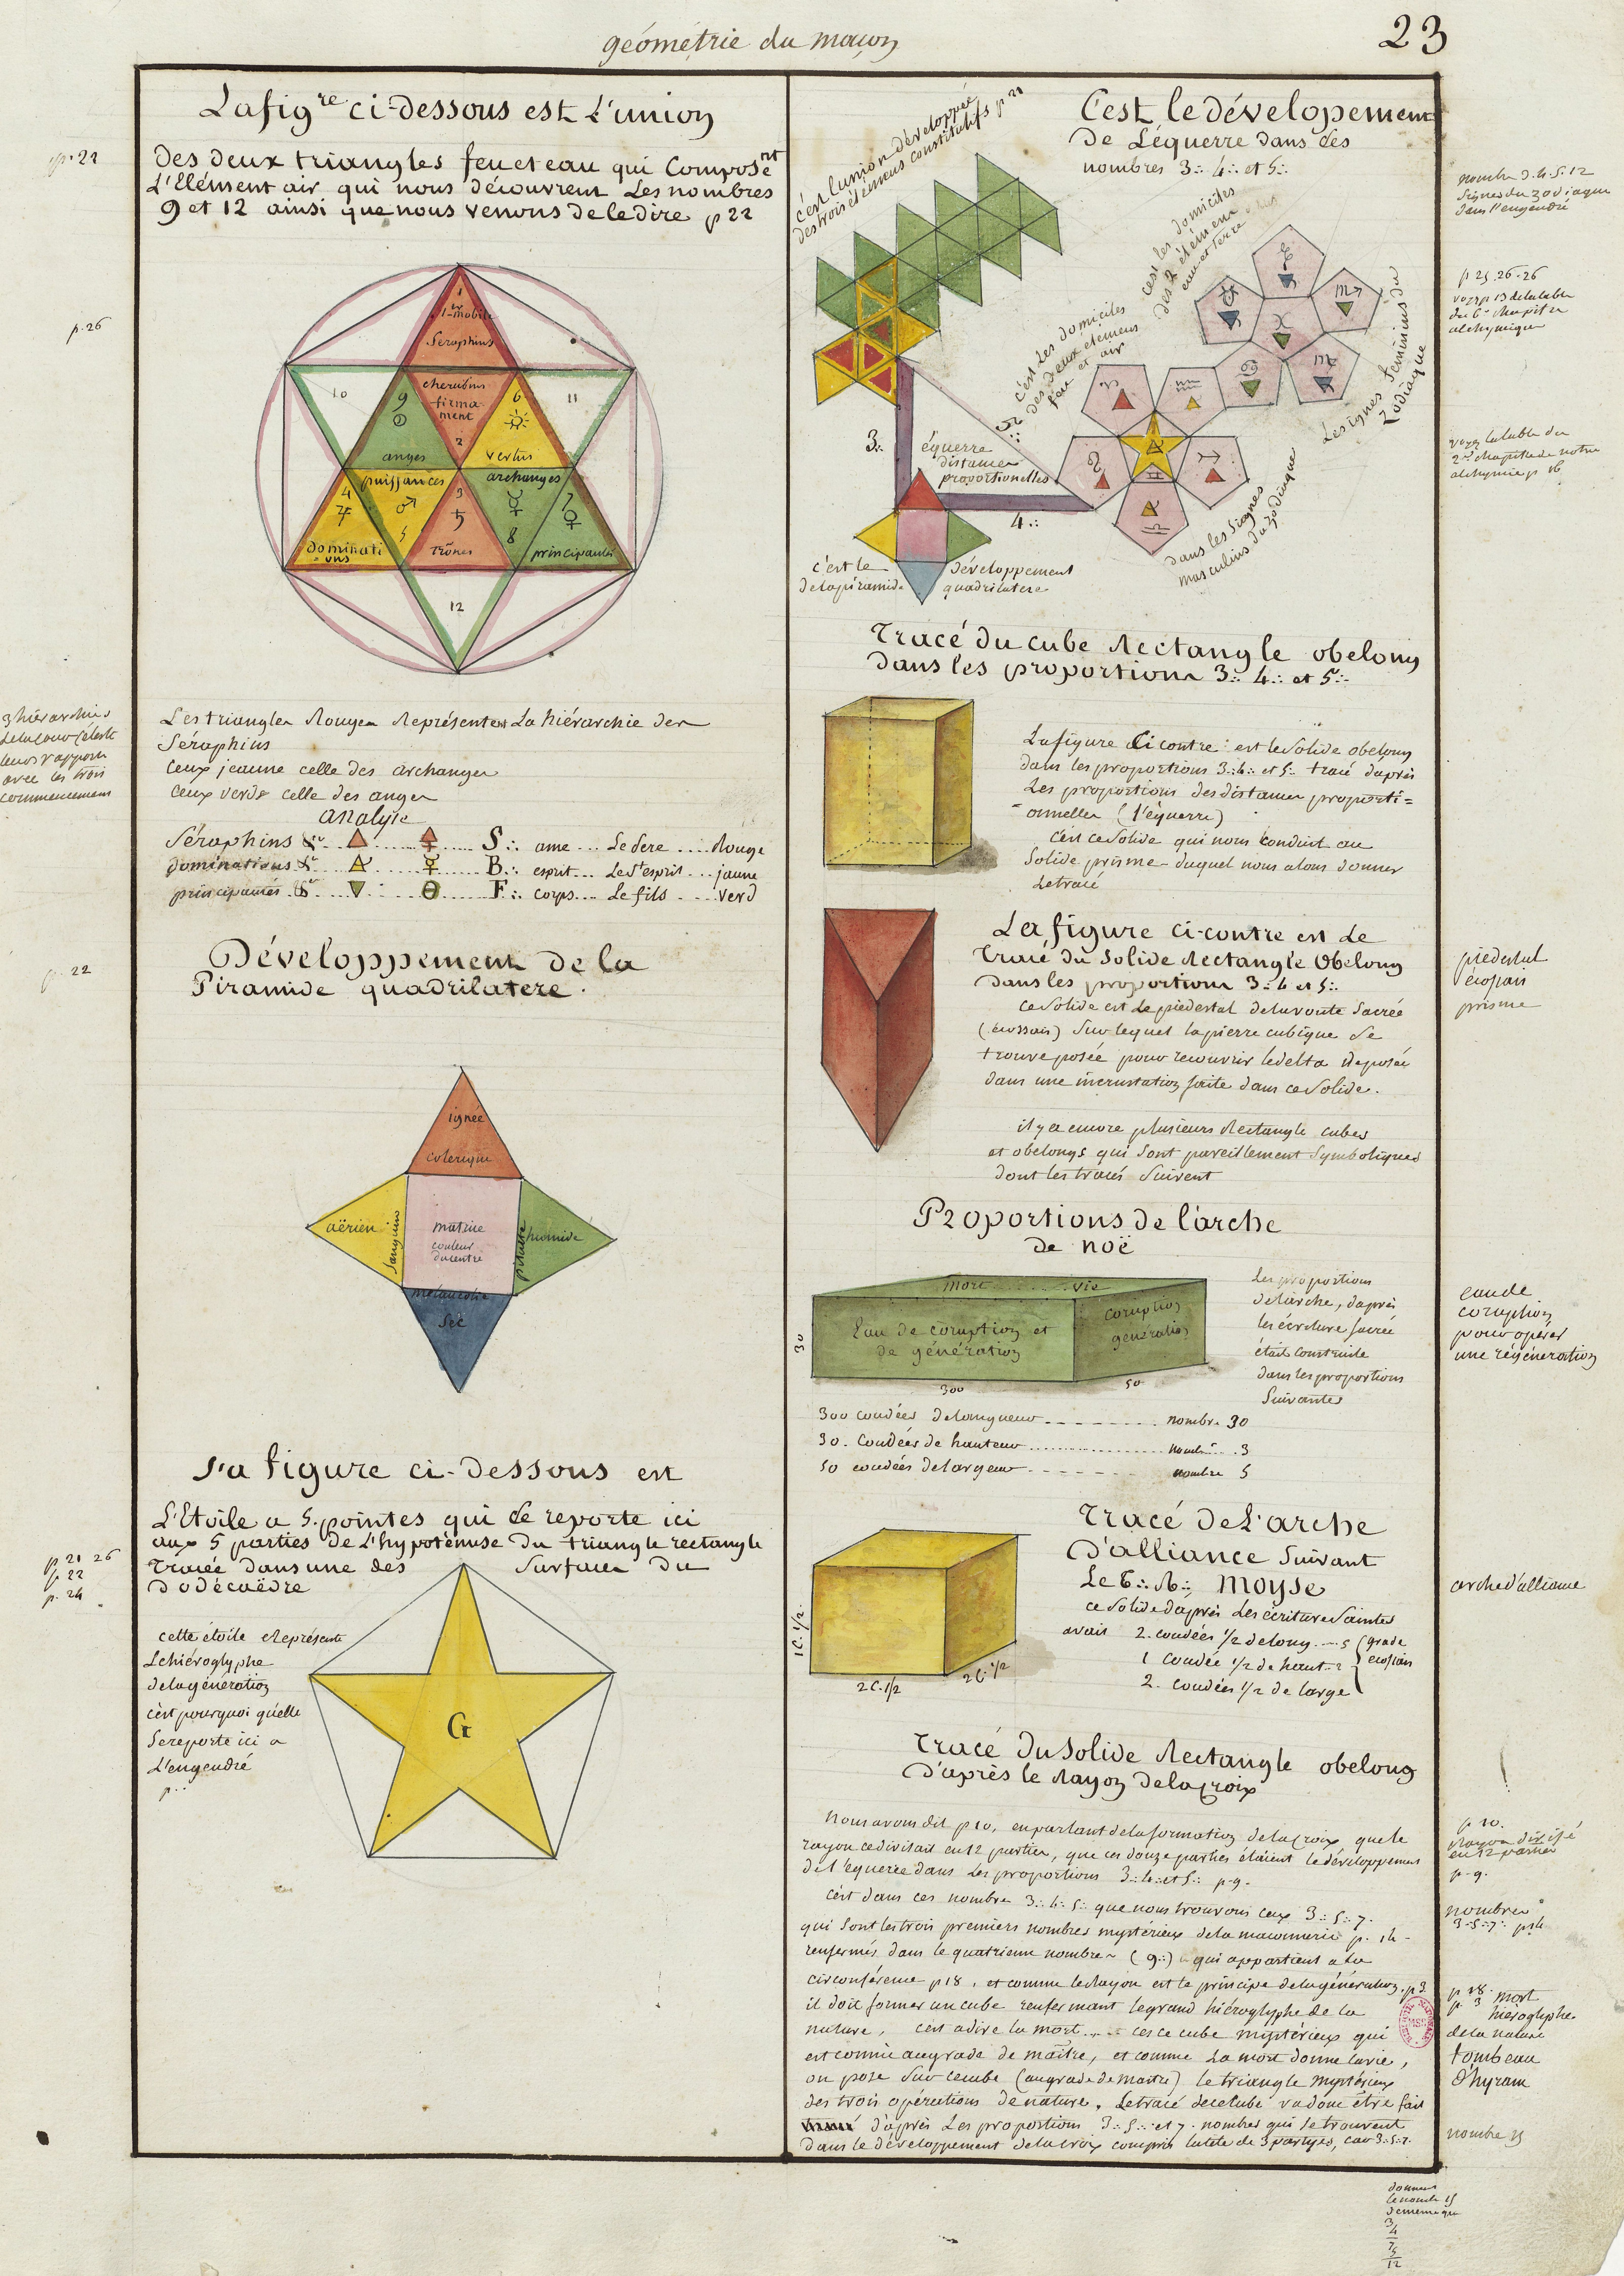 géométrie du maçon
23
La fig.re ci-dessous est L'union
des deux triangles feu et eau qui Composent
L'Elément air qui nous découvrent Les nombres
9 et 12 ainsi que nous venons de le dire p 22
p. 22
p. 26
1
1er mobile
Séraphins
cherubins
firma-
ment
2
9
anges
6
vertus
10
11
puissances
archanges
4
♃
♂
5
3
♄
☿
8
7
♀
dominati
ons
Trônes
principautés
12
3 hiérarchies
de la cour Céleste
leurs rapports
avec les trois
commencemens
Les triangles Rouges Représentent La hiérarchie des
Séraphins
Ceux jeaune celle des archanges
Ceux verds celle des anges
analyse
Séraphins &r S∴ ame Le Pere Rouge
dominations &r B∴ esprit Le St esprit jaune
principautés &r F∴ corps Le fils verd
Développement de la
Piramide quadrilatere.
p. 22
ignée
colerique
aërien
sanguin
matrice
couleur
du centre
pituite
humide
mélancolie
Sec
La figure ci-dessous est
L'Etoile a 5. pointes qui se reporte ici
aux 5 parties de L'hypoténuse du triangle rectangle
Tracée dans une des Surfaces du
Dodécaëdre
p 21 26
p 22
p. 24
cette étoile Représente
L'hiéroglyphe
de la génération
c'est pourquoi qu'elle
Se reporte ici a
L'engendré
p..
G
C'est le dévelopement
De L'équerre dans les
nombres 3∴ 4∴ et 5∴
c'est l'union développée
des trois élémens constitutifs p 21
c'est les domiciles
des 2 élémens
eau et terre
c'est les domiciles
des deux élémens
feu et air
Les signes féminins du
Zodiaque
dans les Signes
masculins du zodiaque
3∴
4∴
5∴
équerre
distances
proportionelles
c'est le développement
de la piramide quadrilatere
nombre 3. 4. 5. 12
Signes du zodiaque
dans l'engendré
p 25. 26. 26
voyez p 13 de la table
du 6e chapitre
alchymique
voyez la table du
2nd chapitre de notre
alchymie p 16
Tracé du cube Rectangle obelong
dans les proportions 3∴ 4∴ et 5∴
La figure Ci contre est le Solide obelong
dans les proportions 3∴ 4∴ et 5∴ tracé d'après
Les proportions des distances proporti=
onnelles (l'équerre)
c'est ce Solide qui nous conduit au
Solide prisme duquel nous alons donner
Le tracé
La figure ci-contre est Le
Tracé du Solide Rectangle Obelong
dans les proportions 3∴ 4 et 5∴
Ce Solide est Le piédestal de la voute Sacrée
(écossais) Sur lequel la pierre cubique Se
trouve posée pour recouvrir le delta déposée
dans une incrustation faite dans ce Solide.
piédestal
écossais
prisme
il y a encore plusieurs Rectangle cubes
et obelongs qui Sont pareillement Symboliques
dont les tracés Suivent
Proportions de l'arche
de noë
mort vie
Eau de coruption et
de génération
coruption
génération
30
300
50
Les proportions
de l'arche, d'après
les écriture sacrée
était construite
dans les proportions
Suivantes
eau de
coruption
pour opérer
une régénération
300 coudées de longueur nombre 30
30. Coudées de hauteur nombre 3
50 coudées de largeur nombre 5
Tracé De L'arche
D'alliance Suivant
Le moyse
ce Solide d'après Les écriture Saintes
avait 2. coudées 1/2 de long 5 (grade
1 coudée 1/2 de haut 2 écossais
2. coudées 1/2 de large
1 C. 1/2
2 C. 1/2
2 C. 1/2
arche d'alliance
Tracé Du Solide Rectangle obelong
D'après le Rayon de la Croix
nous avons dit p 10. en parlant de la formation de la Croix que le
rayon ce divisait en 12 parties, que ces douze parties étaient le développement
de L'équerre dans Les proportions 3∴ 4∴ et 5∴ p 9.
C'est dans ces nombre 3∴ 4∴ 5∴ que nous trouvons ceux 3∴ 5∴ 7.
qui Sont les trois premiers nombres mystérieux de la maconnerie p. 14
renfermés dans le quatrieme nombre (9∴) qui appartient a la
circonférence p 18, et comme le Rayon est le principe de la génération. p 3
il doit former un cube renfermant le grand hiéroglyphe de la
nature, c'est a dire la mort c'es ce cube mystérieux qui
est connu au grade de maître, et comme La mort donne la vie,
on pose Sur ce cube (au grade de maitre) le triangle mystérieux
des trois opérations de nature. Le tracé de ce Cube va donc être fait
d'après Les proportions 3∴ 5∴ et 7. nombres qui Se trouvent
Dans le développement de la croix compris la tete de 3 partyes, car 3∴ 5∴ 7.
p 10.
Rayon divisé
en 12 parties
p. 9.
nombres
3∴ 5∴ 7∴ p 14
p 18. mort
p. 3 hiéroglyphe
de la nature
tombeau
d'hyram
nombre 15
donnent
le nombre 15
de meme que
3
4
7
5
12